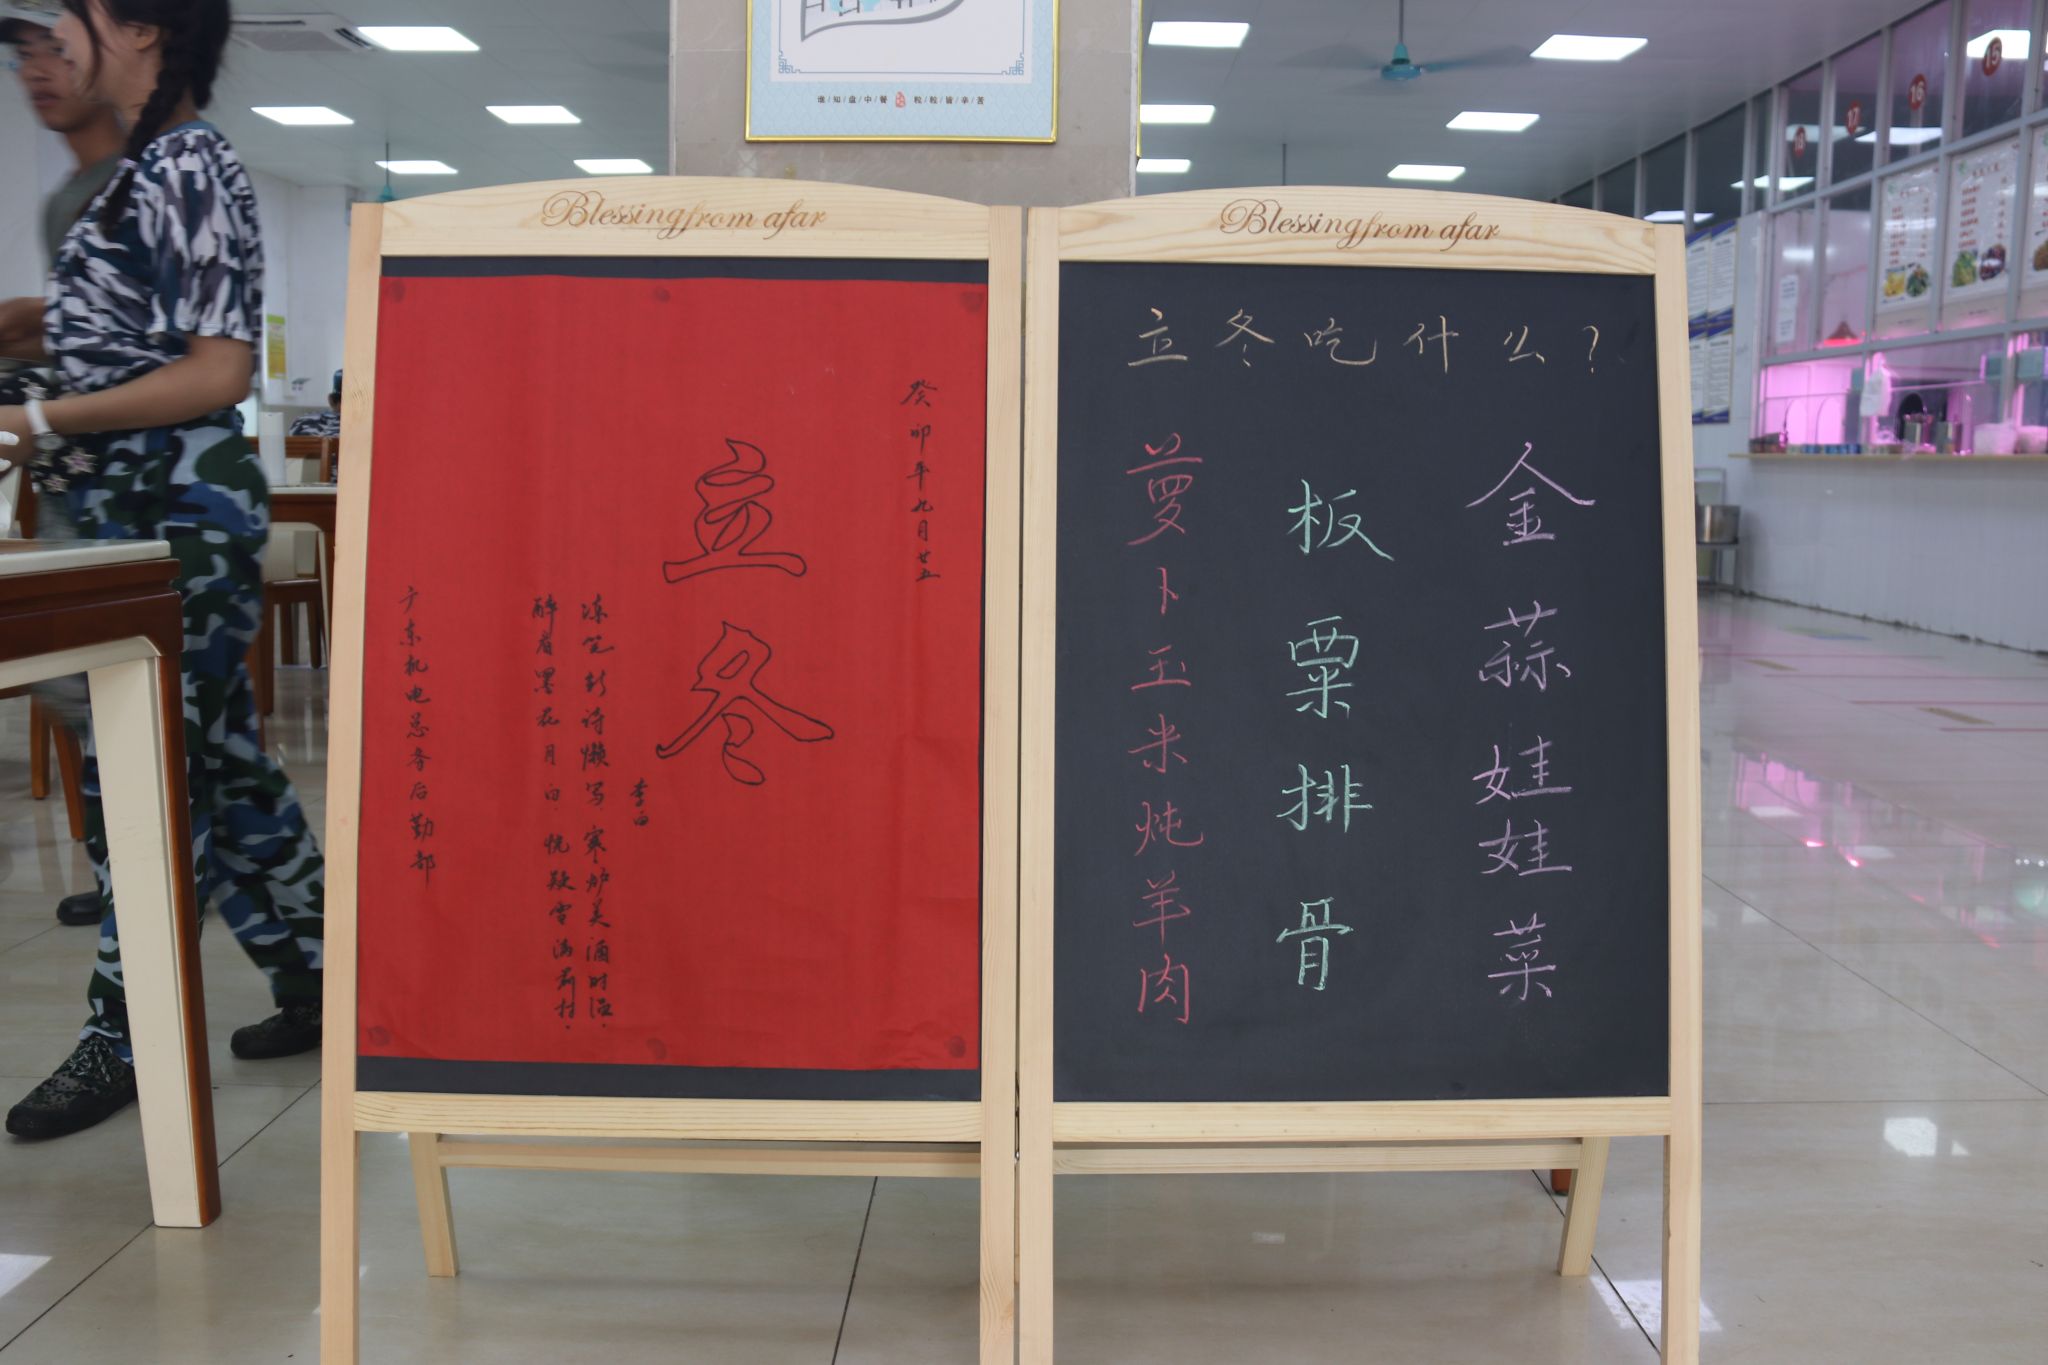 谁/知/盘/中/餐 粒/粒/皆/辛/苦
Blessing from afar
癸卯年九月廿五
立冬
李白
冻笔新诗懒写寒炉美酒时温.
醉看墨花月白.恍疑雪满前村.
广东机电总务后勤部
Blessing from afar
立冬吃什么?
金蒜娃娃菜
板粟排骨
萝卜玉米炖羊肉
15
16
17
18